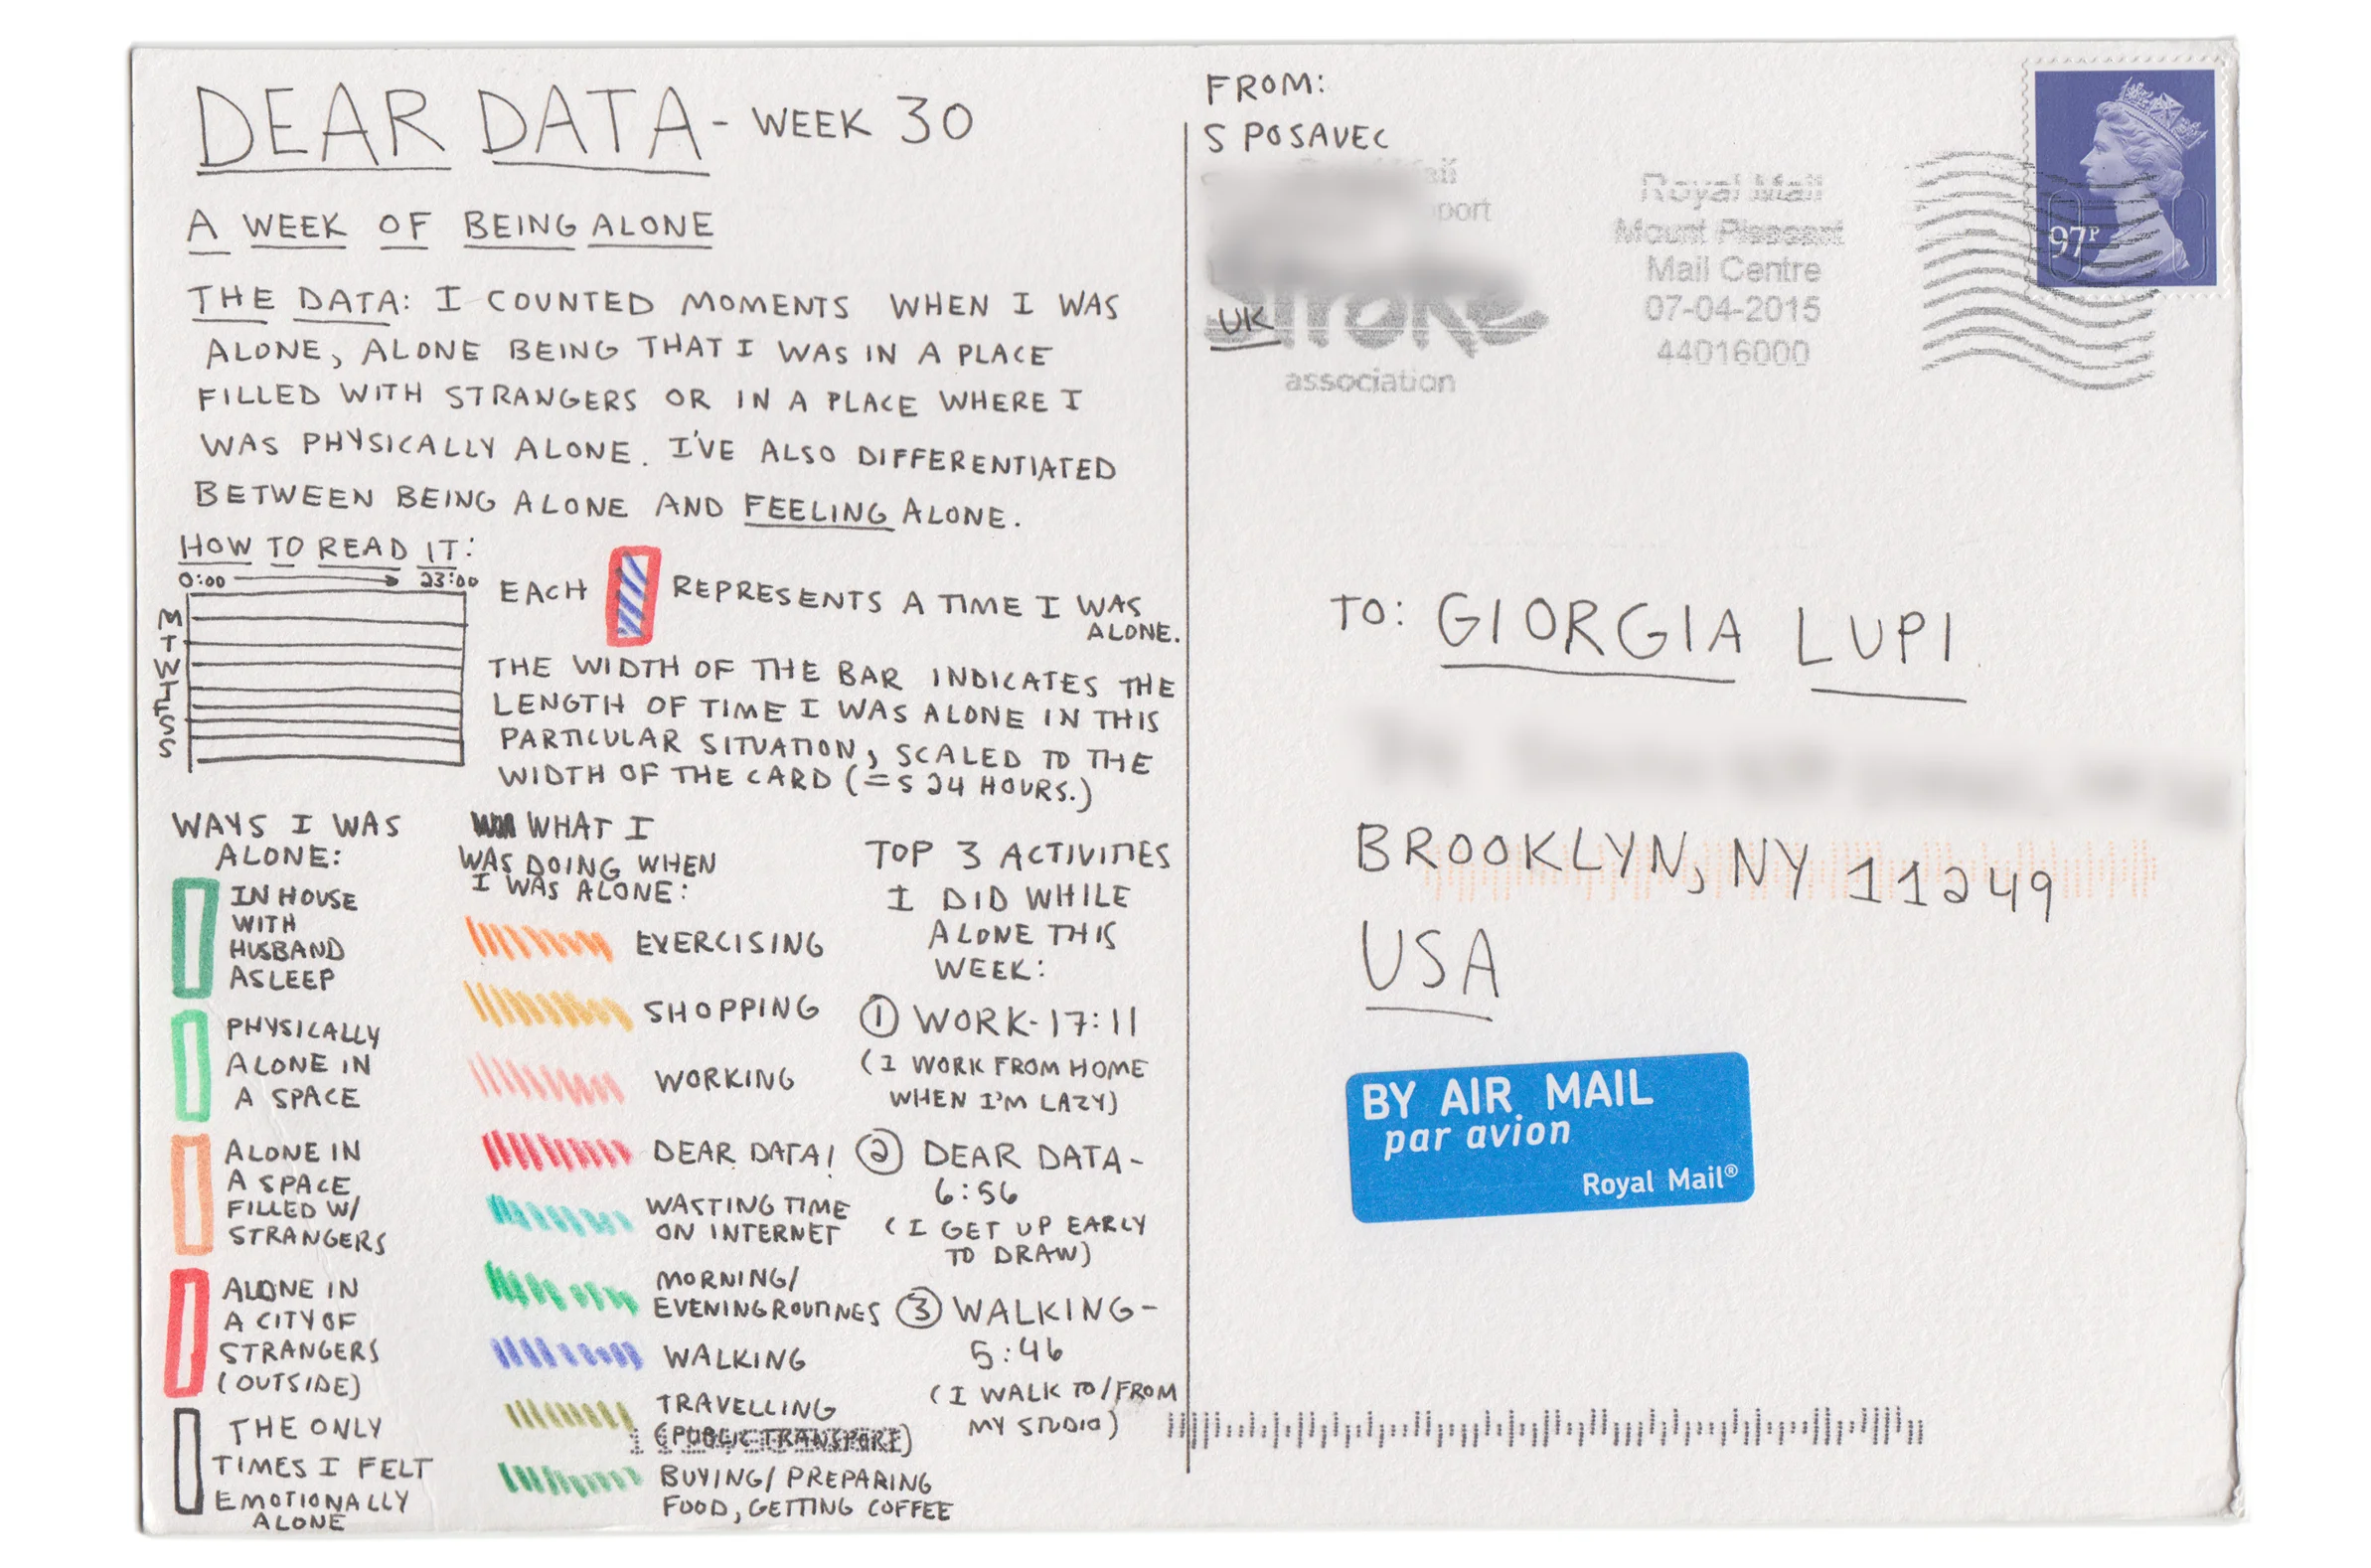 DEAR DATA - WEEK 30
A WEEK OF BEING ALONE
THE DATA: I COUNTED MOMENTS WHEN I WAS
ALONE, ALONE BEING THAT I WAS IN A PLACE
FILLED WITH STRANGERS OR IN A PLACE WHERE I
WAS PHYSICALLY ALONE. I'VE ALSO DIFFERENTIATED
BETWEEN BEING ALONE AND FEELING ALONE.
HOW TO READ IT:
0:00 23:00
M
T
W
T
F
S
S
EACH REPRESENTS A TIME I WAS
ALONE.
THE WIDTH OF THE BAR INDICATES THE
LENGTH OF TIME I WAS ALONE IN THIS
PARTICULAR SITUATION, SCALED TO THE
WIDTH OF THE CARD (=S 24 HOURS.)
WAYS I WAS
ALONE:
IN HOUSE
WITH
HUSBAND
ASLEEP
PHYSICALLY
ALONE IN
A SPACE
ALONE IN
A SPACE
FILLED W/
STRANGERS
ALONE IN
A CITY OF
STRANGERS
(OUTSIDE)
THE ONLY
TIMES I FELT
EMOTIONALLY
ALONE
WHAT I
WAS DOING WHEN
I WAS ALONE:
EXERCISING
SHOPPING
WORKING
DEAR DATA!
WASTING TIME
ON INTERNET
MORNING/
EVENING ROUTINES
WALKING
TRAVELLING
(PUBLIC TRANSPORT)
BUYING/PREPARING
FOOD, GETTING COFFEE
TOP 3 ACTIVITIES
I DID WHILE
ALONE THIS
WEEK:
① WORK-17:11
(I WORK FROM HOME
WHEN I'M LAZY)
② DEAR DATA-
6:56
(I GET UP EARLY
TO DRAW)
③ WALKING-
5:46
(I WALK TO/FROM
MY STUDIO)
FROM:
S POSAVEC
UK
stroke
association
Royal Mail
Mount Pleasant
Mail Centre
07-04-2015
44016000
97P
TO: GIORGIA LUPI
BROOKLYN, NY 11249
USA
BY AIR MAIL
par avion
Royal Mail®